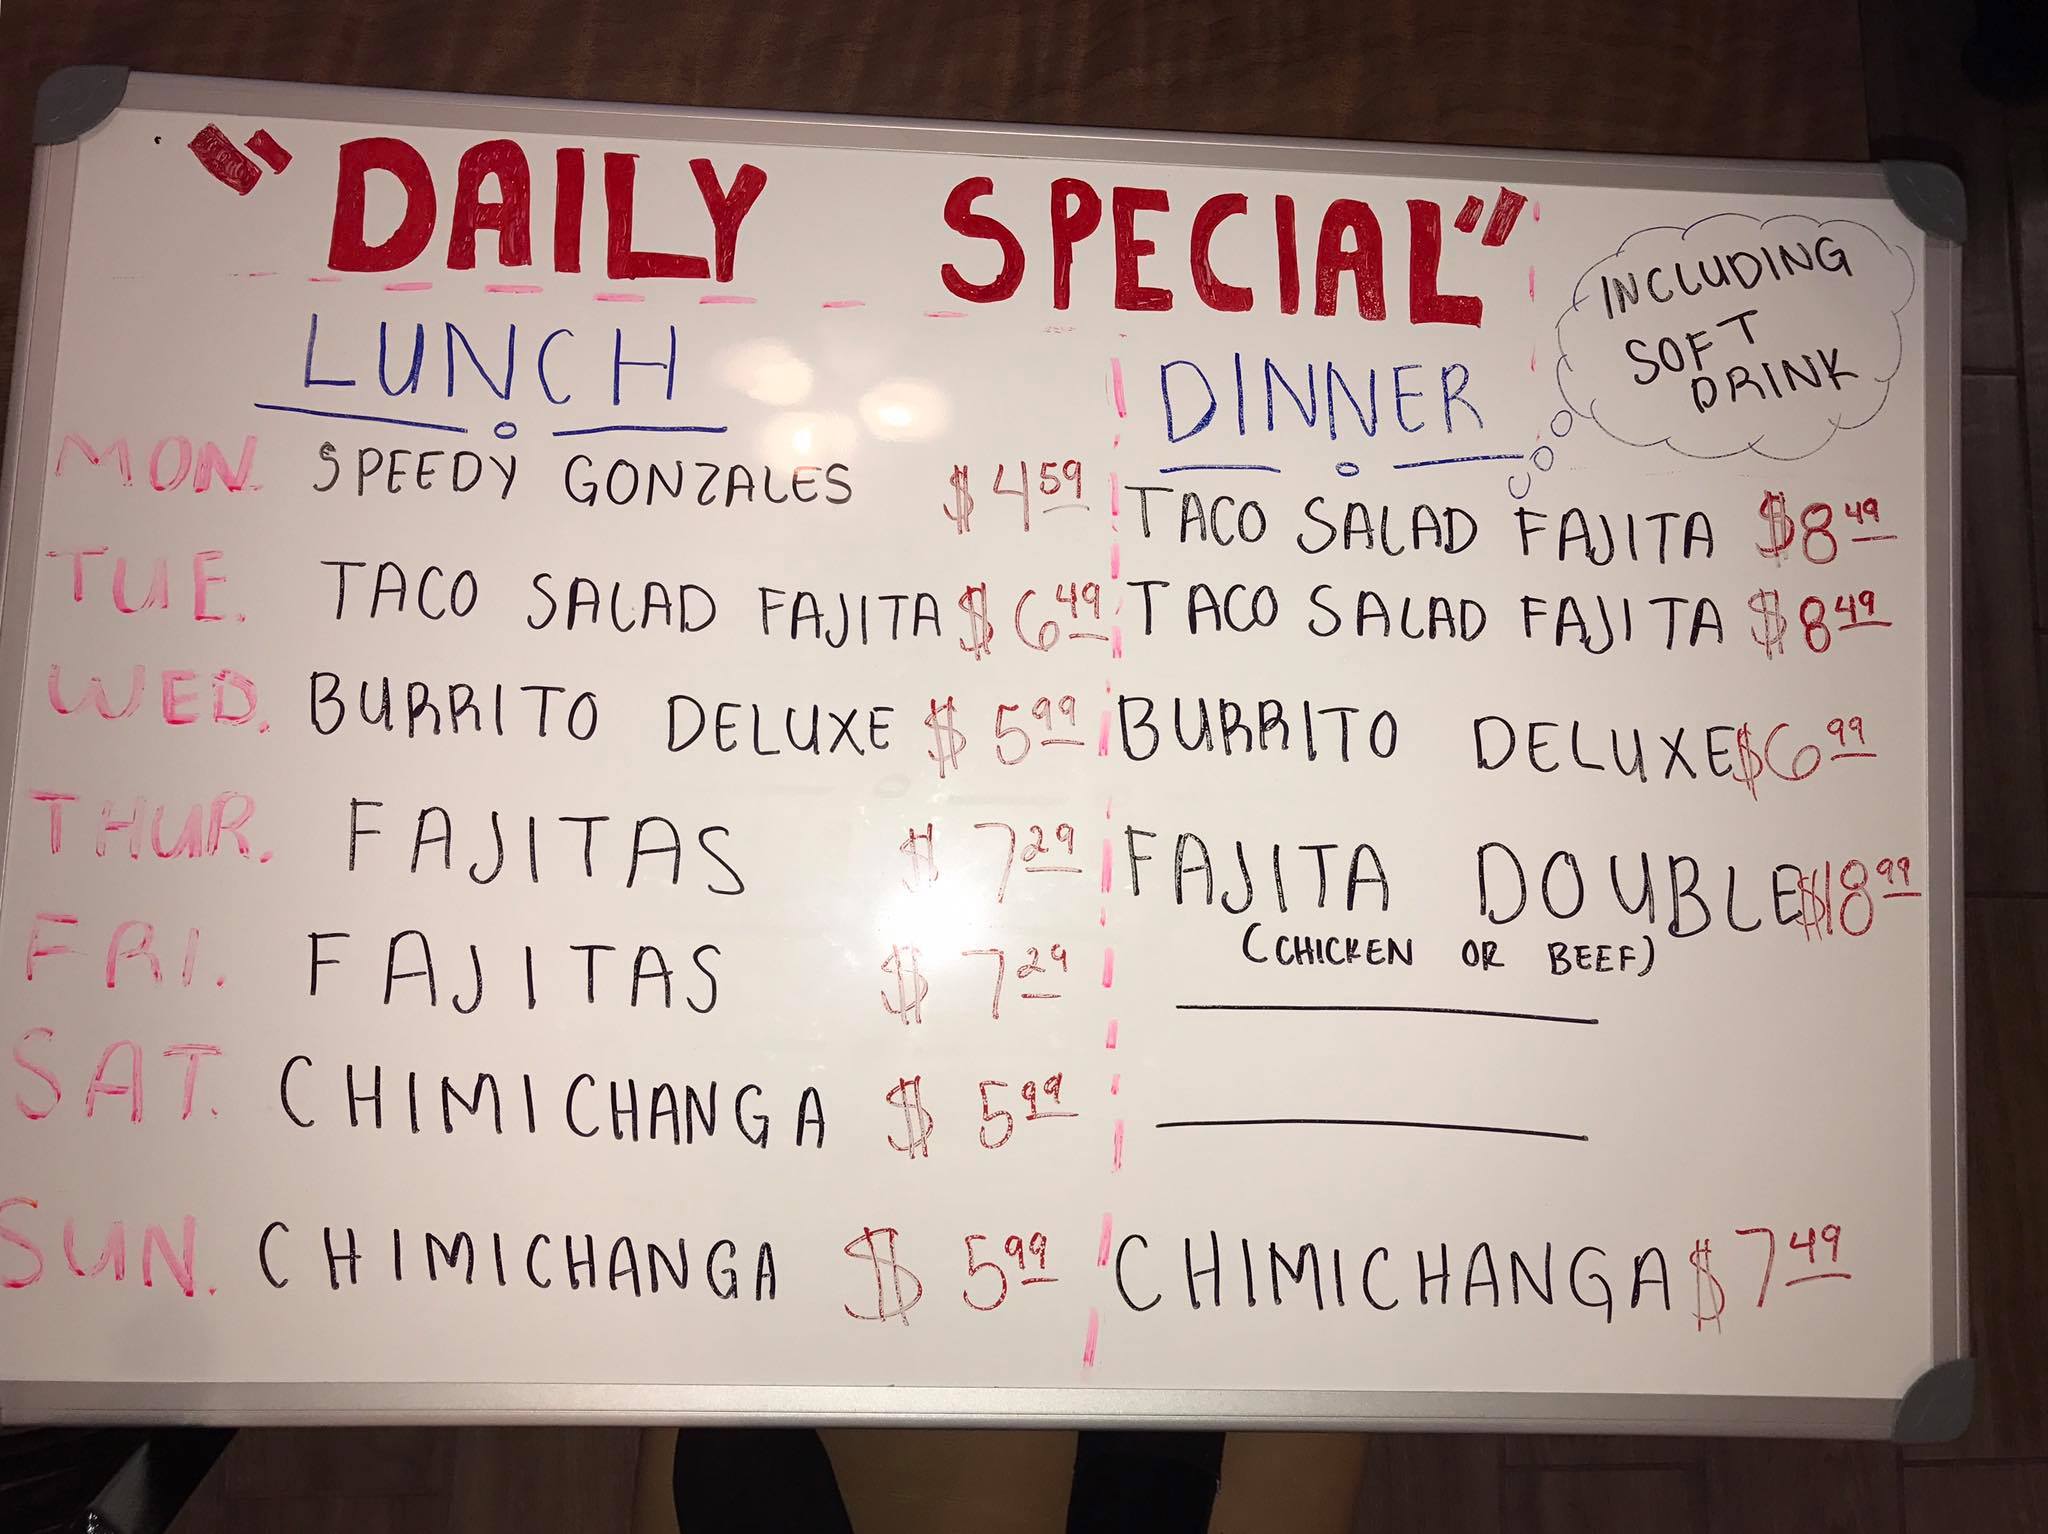 "DAILY SPECIAL"
INCLUDING
SOFT
DRINK
LUNCH
DINNER
MON. SPEEDY GONZALES $4.59 TACO SALAD FAJITA $8.49
TUE. TACO SALAD FAJITA $6.49 TACO SALAD FAJITA $8.49
WED. BURRITO DELUXE $5.99 BURRITO DELUXE $6.99
THUR. FAJITAS $7.29 FAJITA DOUBLE $18.99
(CHICKEN OR BEEF)
FRI. FAJITAS $7.29
SAT. CHIMICHANGA $5.99
SUN. CHIMICHANGA $5.99 CHIMICHANGA $7.49